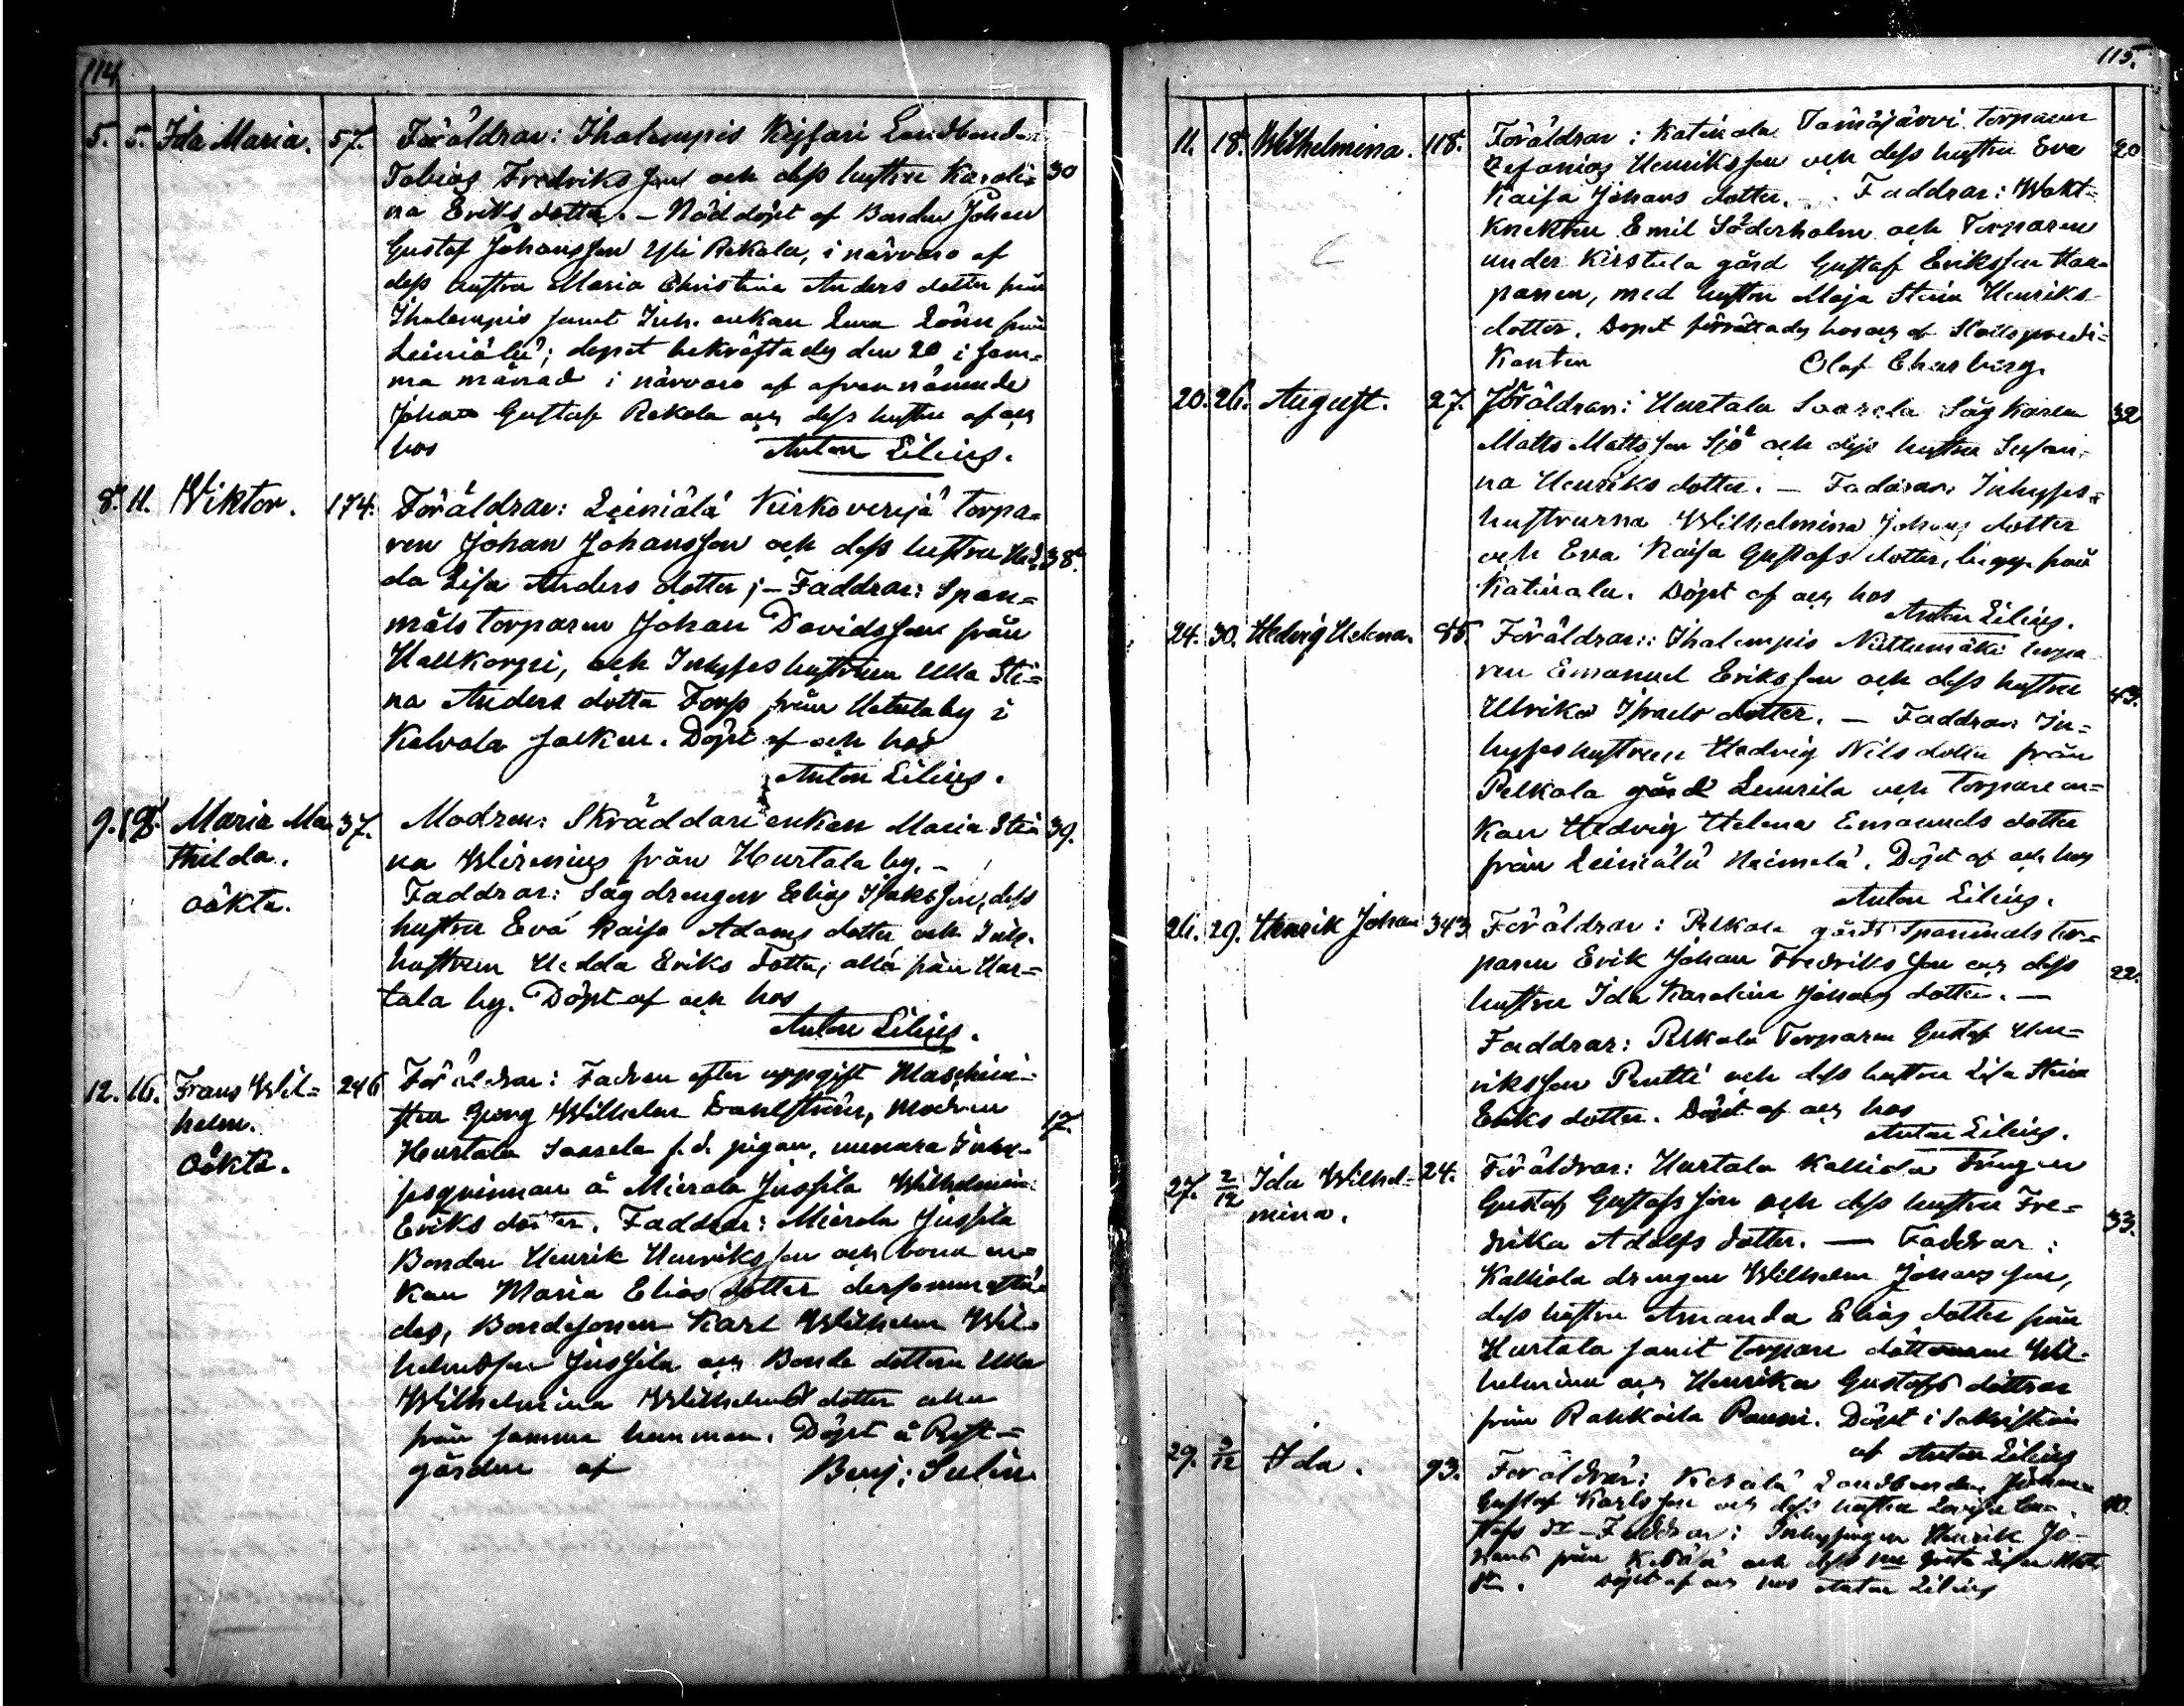 114
5. 5. Ida Maria. 57. Föräldrar: Ihalempis Landbonden
Tobias Fredriksson och dess hustru Karoli= 30
na Eriksdotter. – Nöddöpt af Bonden Johan
Gustaf Johansson Yli Rekola, i närvaro af
dess hustru Maria Christina Anders dotter från
Ihalempis samt Inh. enkan Lönn från
Leiniälä; dopet bekräftades den 20 i sam=
ma månad i närvaro af ofvannämnde
Johan Gustaf Rekola och dess hustru af och
hos Anton Lilius.
8. 11. Wiktor. 174. Föräldrar: Leiniälä Kirkoverjä torpa=
ren Johan Johansson och dess hustru Hed= 38.
da Lisa Anders dotter; – Faddrar: Span=
målstorparen Johan Davidsson från
Hallkorpi, och Inhyses hustrun Ulla Sti=
na Anders dotter Fors från by i
Kalvola socken. Döpt af och hos
Anton Lilius.
9. 18. Maria Ma 37. Modren: Skräddare enkan Maria Sti 39.
thilda. na Wirenius från Hurtala by. –
Faddrar: Sågdrengen Elias Isaksson, dess
oäkta. hustru Eva Kaisa Adams dotter och Inh.
hustrun Hedda Eriks dotter, alla från Hur=
tala by. Döpt af och hos
Anton Lilius.
12. 16. Frans Wil= 246 Föräldrar: Fadren efter uppgift Maschini=
helm. sten Georg Wilhelm Dahlström, modren 17.
Oäkta. Hurtala Saarela f.d. pigan, numera Inhy=
sesqvinnan å Mierola Jussila Wilhelmina
Eriks dotter. Faddrar: Mierola Jussila
Bonden Henrik Henriksson och bonde en=
kan Maria Elias dotter dersammastä=
des, Bondesonen Karl Wilhelm Wil=
helmsson Jussila och Bonde dottern Ulla
Wilhelmina Wilhelms dotter alla
från samma hemman. Döpt å Prest=
gården af Benj: Sulin
115.
11. 18. Wilhelmina. 118. Föräldrar: Katinala Tömäjärvi torparen
Zefanias Henriksson och dess hustru Eva 20
Kaisa Johans dotter. Faddrar: Wakt=
knekten Emil Söderholm och Torparen
under Kirstula gård Gustaf Eriksson Haa=
panen, med hustru Maja Stina Henriks
dotter. Dopet förrättades hos och af Slottspredi=
kanten Olof Ehrsberg.
20. 26. August. 27. Föräldrar: Hurtala Saarela Sågkarlen 32
Matts Mattsson Sjö och dess hustru Sefani=
na Henriks dotter. – Faddrar: Inhyses=
hustrurna Wilhelmina Johans dotter
och Eva Kaisa Gustafs dotter, begge från
Katinala. Döpt af och hos
Anton Lilius.
24. 30. Hedvig Helena. 85. Föräldrar: Ihalempis Niittumäki torpa
ren Emanuel Eriksson och dess hustru 43.
Ulrika Israels dotter. – Faddrar: In=
hyses hustrun Hedvig Nils dotter från
Pelkola gård Lemrila och torpare en=
kan Hedvig Helena Emanuels dotter
från Leiniälä Heimelä. Döpt af och hos
Anton Lilius.
26. 29. Henrik Johan 343 Föräldrar: Pelkola gårds Spanmåls tor=
paren Erik Johan Fredriksson och dess 22.
hustru Ida Karolina Johans dotter. –
Faddrar: Pelkola Torparen Gustaf Hen=
riksson Pentti och dess hustru Lisa Stina
Eriks dotter. Döpt af och hos
Anton Lilius.
27. 2/12 Ida Wilhel= 24. Föräldrar: Hurtala Kalliola drengen
mina. Gustaf Gustafsson och dess hustru Fre= 33.
drika Adolfs dotter. – Faddrar:
Kalliola drengen Wilhelm Johansson,
dess hustru Amanda Elias dotter från
Hurtala samt torpare döttrarne Wil=
helmina och Henrika Gustafs döttrar
från Rahkoila Paunu. Döpt i Sakristian
af Anton Lilius
29. 3/12 Ida. 93. Föräldrar: Landbonden Johan
Gustaf Karlsson och dess hustru Lovisa Gu= 10.
stafs dr – Faddrar: Inhysingen Henrik Jo=
hans från och dess hu Greta Lisa Matts
dr. Döpt af och hos Anton Lilius